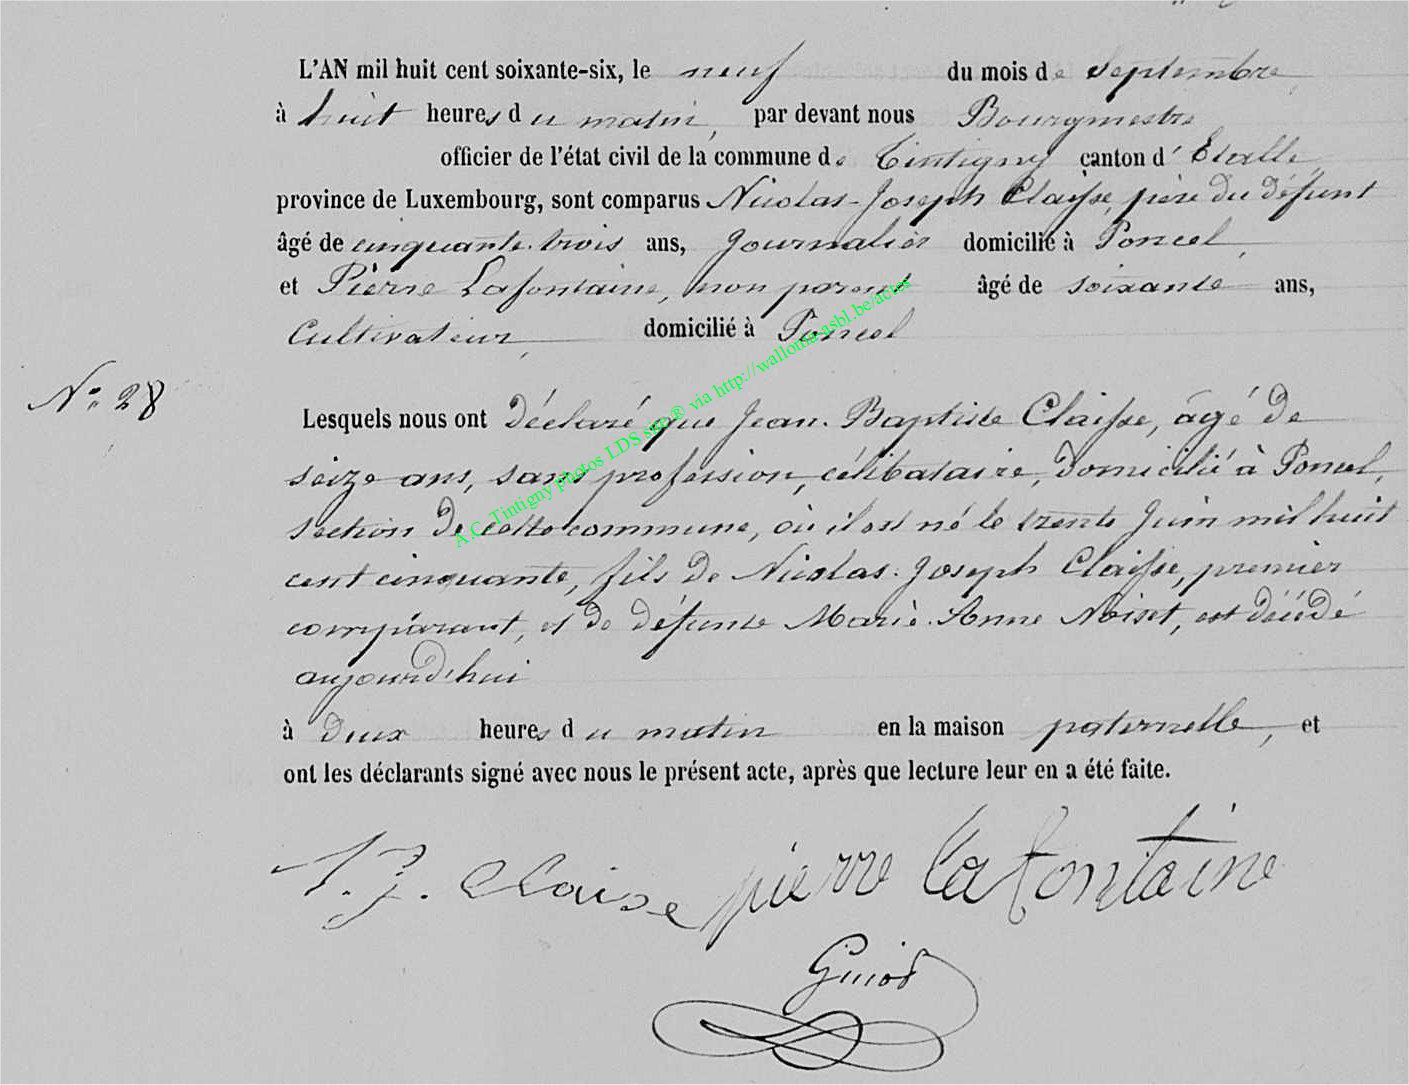 L'AN mil huit cent soixante-six, le neuf du mois de Septembre
à huit heures du matin, par devant nous Bourgmestre
officier de l'état civil de la commune de Tintigny canton d'Etalle,
province de Luxembourg, sont comparus Nicolas-Joseph Claisse, père du défunt
âgé de cinquante-trois ans, Journalier domicilié à Poncel,
et Pierre Lafontaine, non parent âgé de soixante ans,
Cultivateur, domicilié à Poncel
N° 28
Lesquels nous ont Déclaré que Jean-Baptiste Claisse, âgé de
seize ans, sans profession, célibataire, domicilié à Poncel,
section de cette commune, où il est né le trente Juin mil huit
cent cinquante, fils de Nicolas-Joseph Claisse, premier
comparant, et de défunte Marie-Anne Noiset, est décédé
aujourd'hui
à Deux heures du matin en la maison paternelle, et
ont les déclarants signé avec nous le présent acte, après que lecture leur en a été faite.
N. J. Claisse pierre lafontaine
Guiot
A.C. Tintigny photos LDS sec ® via http://wallonia-asbl.be/actes